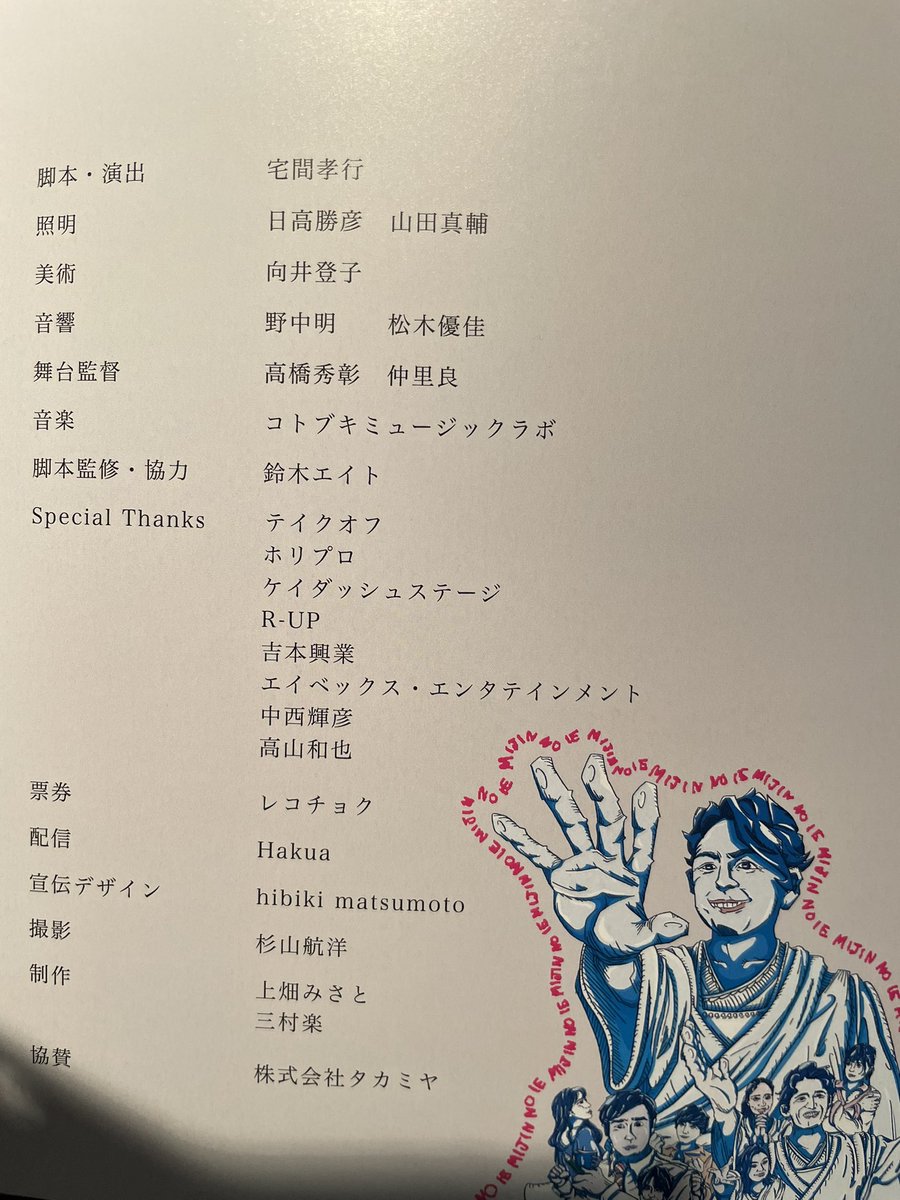 脚本・演出 宅間孝行
照明 日高勝彦 山田真輔
美術 向井登子
音響 野中明 松木優佳
舞台監督 高橋秀彰 仲里良
音楽 コトブキミュージックラボ
脚本監修・協力 鈴木エイト
Special Thanks テイクオフ
ホリプロ
ケイダッシュステージ
R-UP
吉本興業
エイベックス・エンタテインメント
中西輝彦
高山和也
票券 レコチョク
配信 Hakua
宣伝デザイン hibiki matsumoto
撮影 杉山航洋
制作 上畑みさと
三村楽
協賛 株式会社タカミヤ
MIJIN NO IE MIJIN NO IE MIJIN NO IE MIJIN NO IE MIJIN NO IE MIJIN NO IE MIJIN NO IE MIJIN NO IE MIJIN NO IE MIJIN NO IE